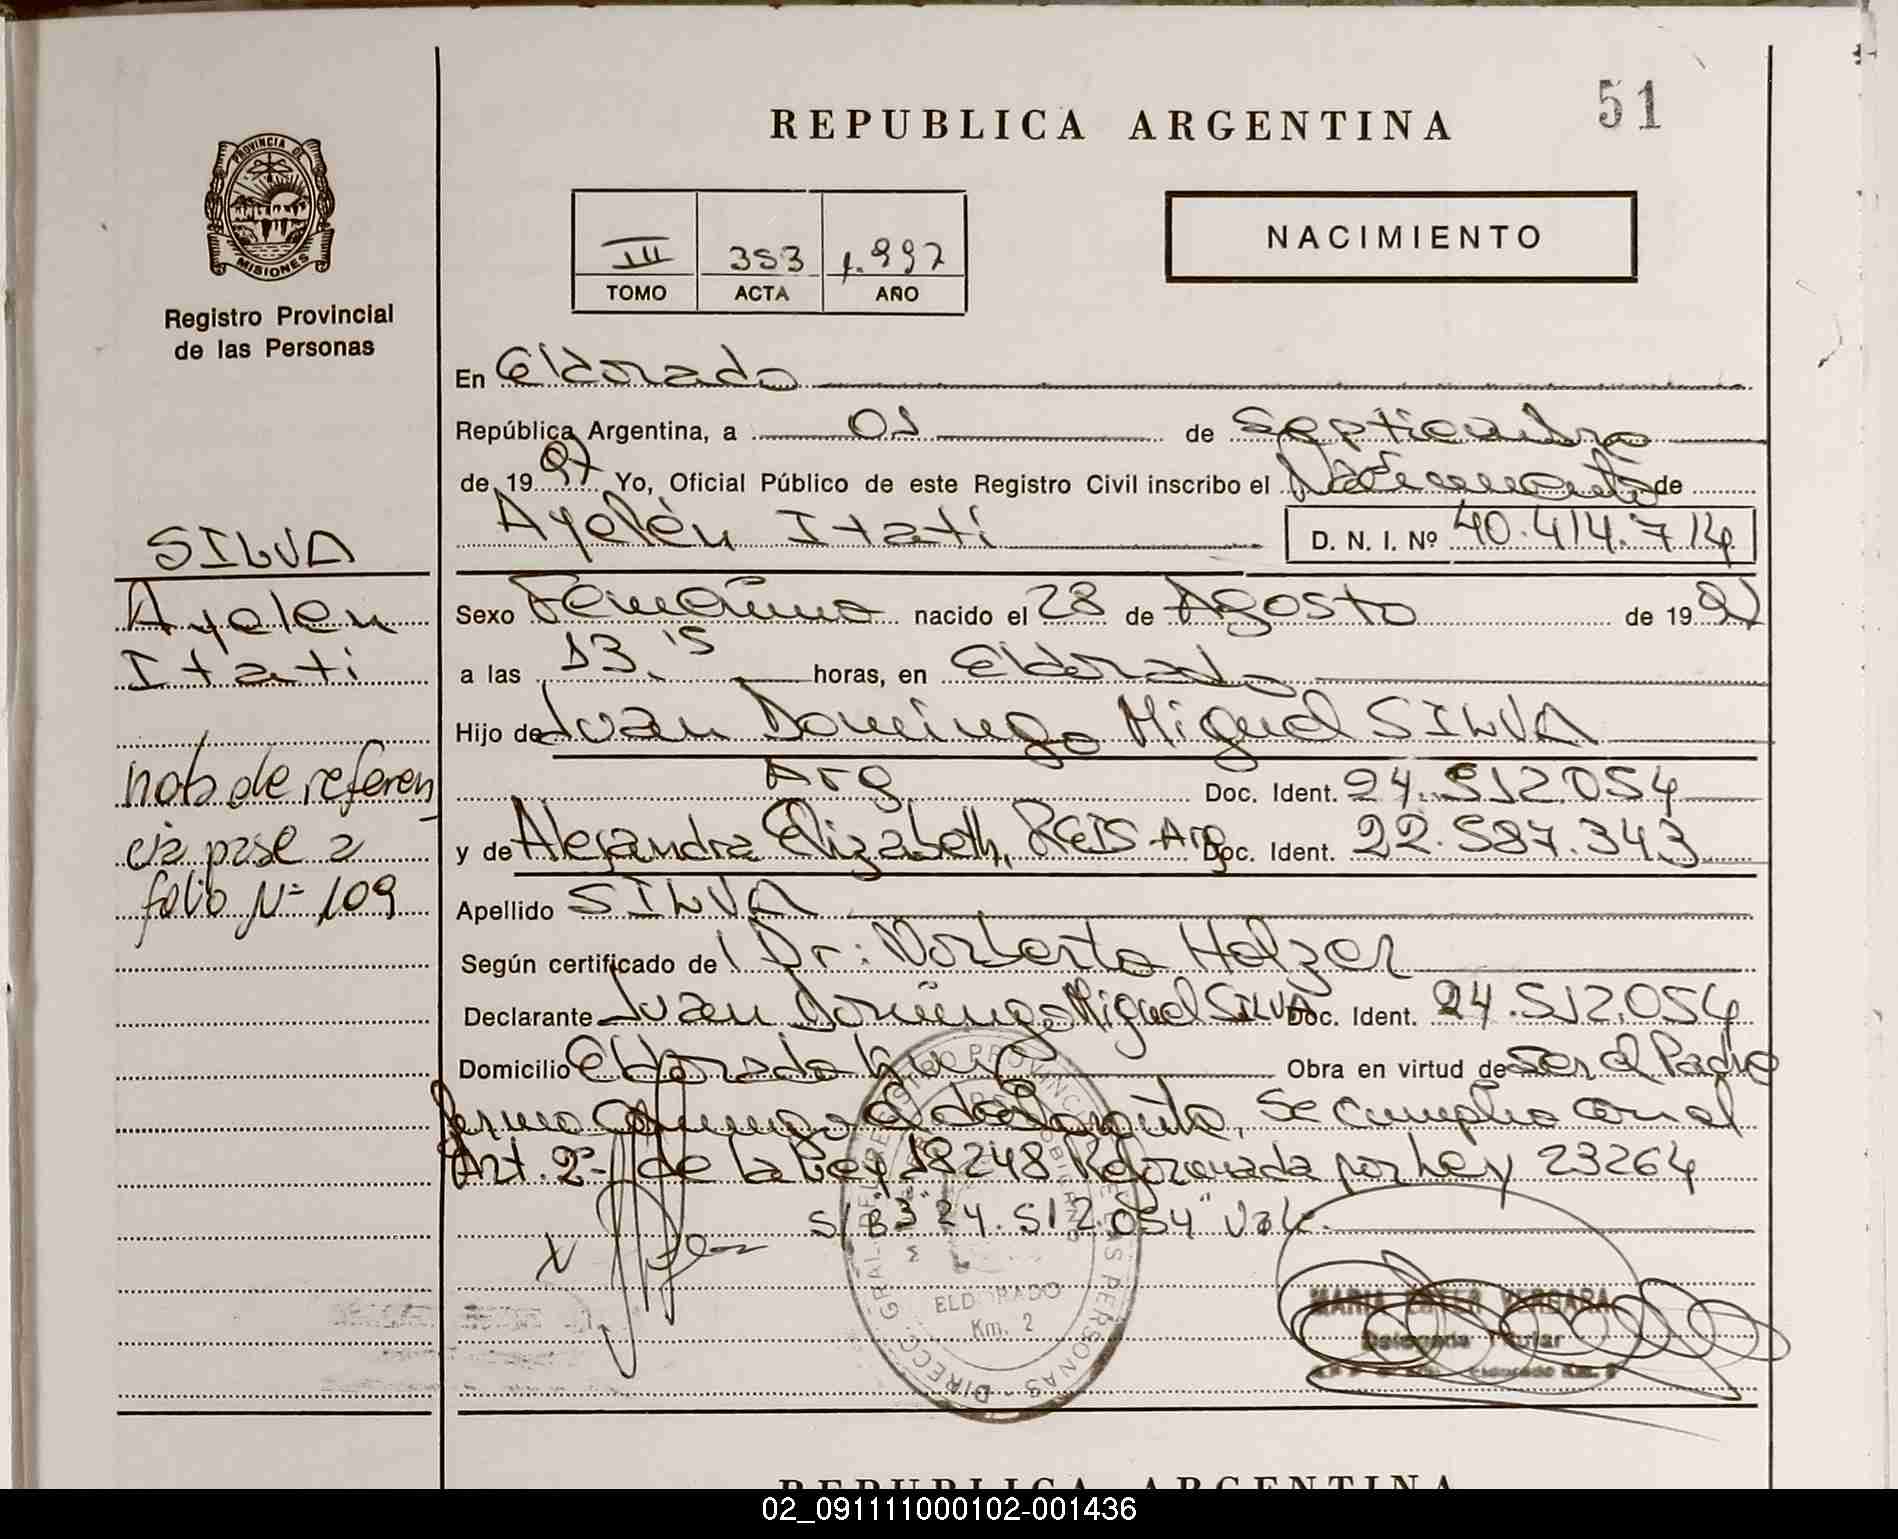 51
REPUBLICA ARGENTINA
PROVINCIA DE
MISIONES
Registro Provincial
de las Personas
NACIMIENTO
III 353 1.997
TOMO ACTA AÑO
En Eldorado
República Argentina, a 01 de Septiembre
de 1997 Yo, Oficial Público de este Registro Civil inscribo el Nacimiento de
Ayelén Itatí D. N. I. Nº 40.414.714
SILVA
Ayelen
Itati
Sexo Femenino nacido el 28 de Agosto de 1997
a las 13.15 horas, en Eldorado
Hijo de Juan Domingo Miguel SILVA
Arg Doc. Ident. 24.512.054
y de Alejandra Elizabeth, REIS Arg Doc. Ident. 22.587.343
nota de referen
cia pase a
folio Nº 109
Apellido SILVA
Según certificado de Dr: Norberto Holzer
Declarante Juan Domingo Miguel SILVA Doc. Ident. 24.512.054
Domicilio Eldorado Obra en virtud de Ser el Padre
firma conmigo el declarante, se cumplio con el
Art. 2º de la Ley 18248 Reformada por Ley 23264
S/B 3 "24.512.054" Vale.
ELDORADO
Km. 2
DIRECC. GRAL. DEL REGISTRO PROVINCIAL DE LAS PERSONAS
MARIA ESTER VERGARA
Delegada Titular
Eldorado Km. 2
REPUBLICA ARGENTINA
02_091111000102-001436